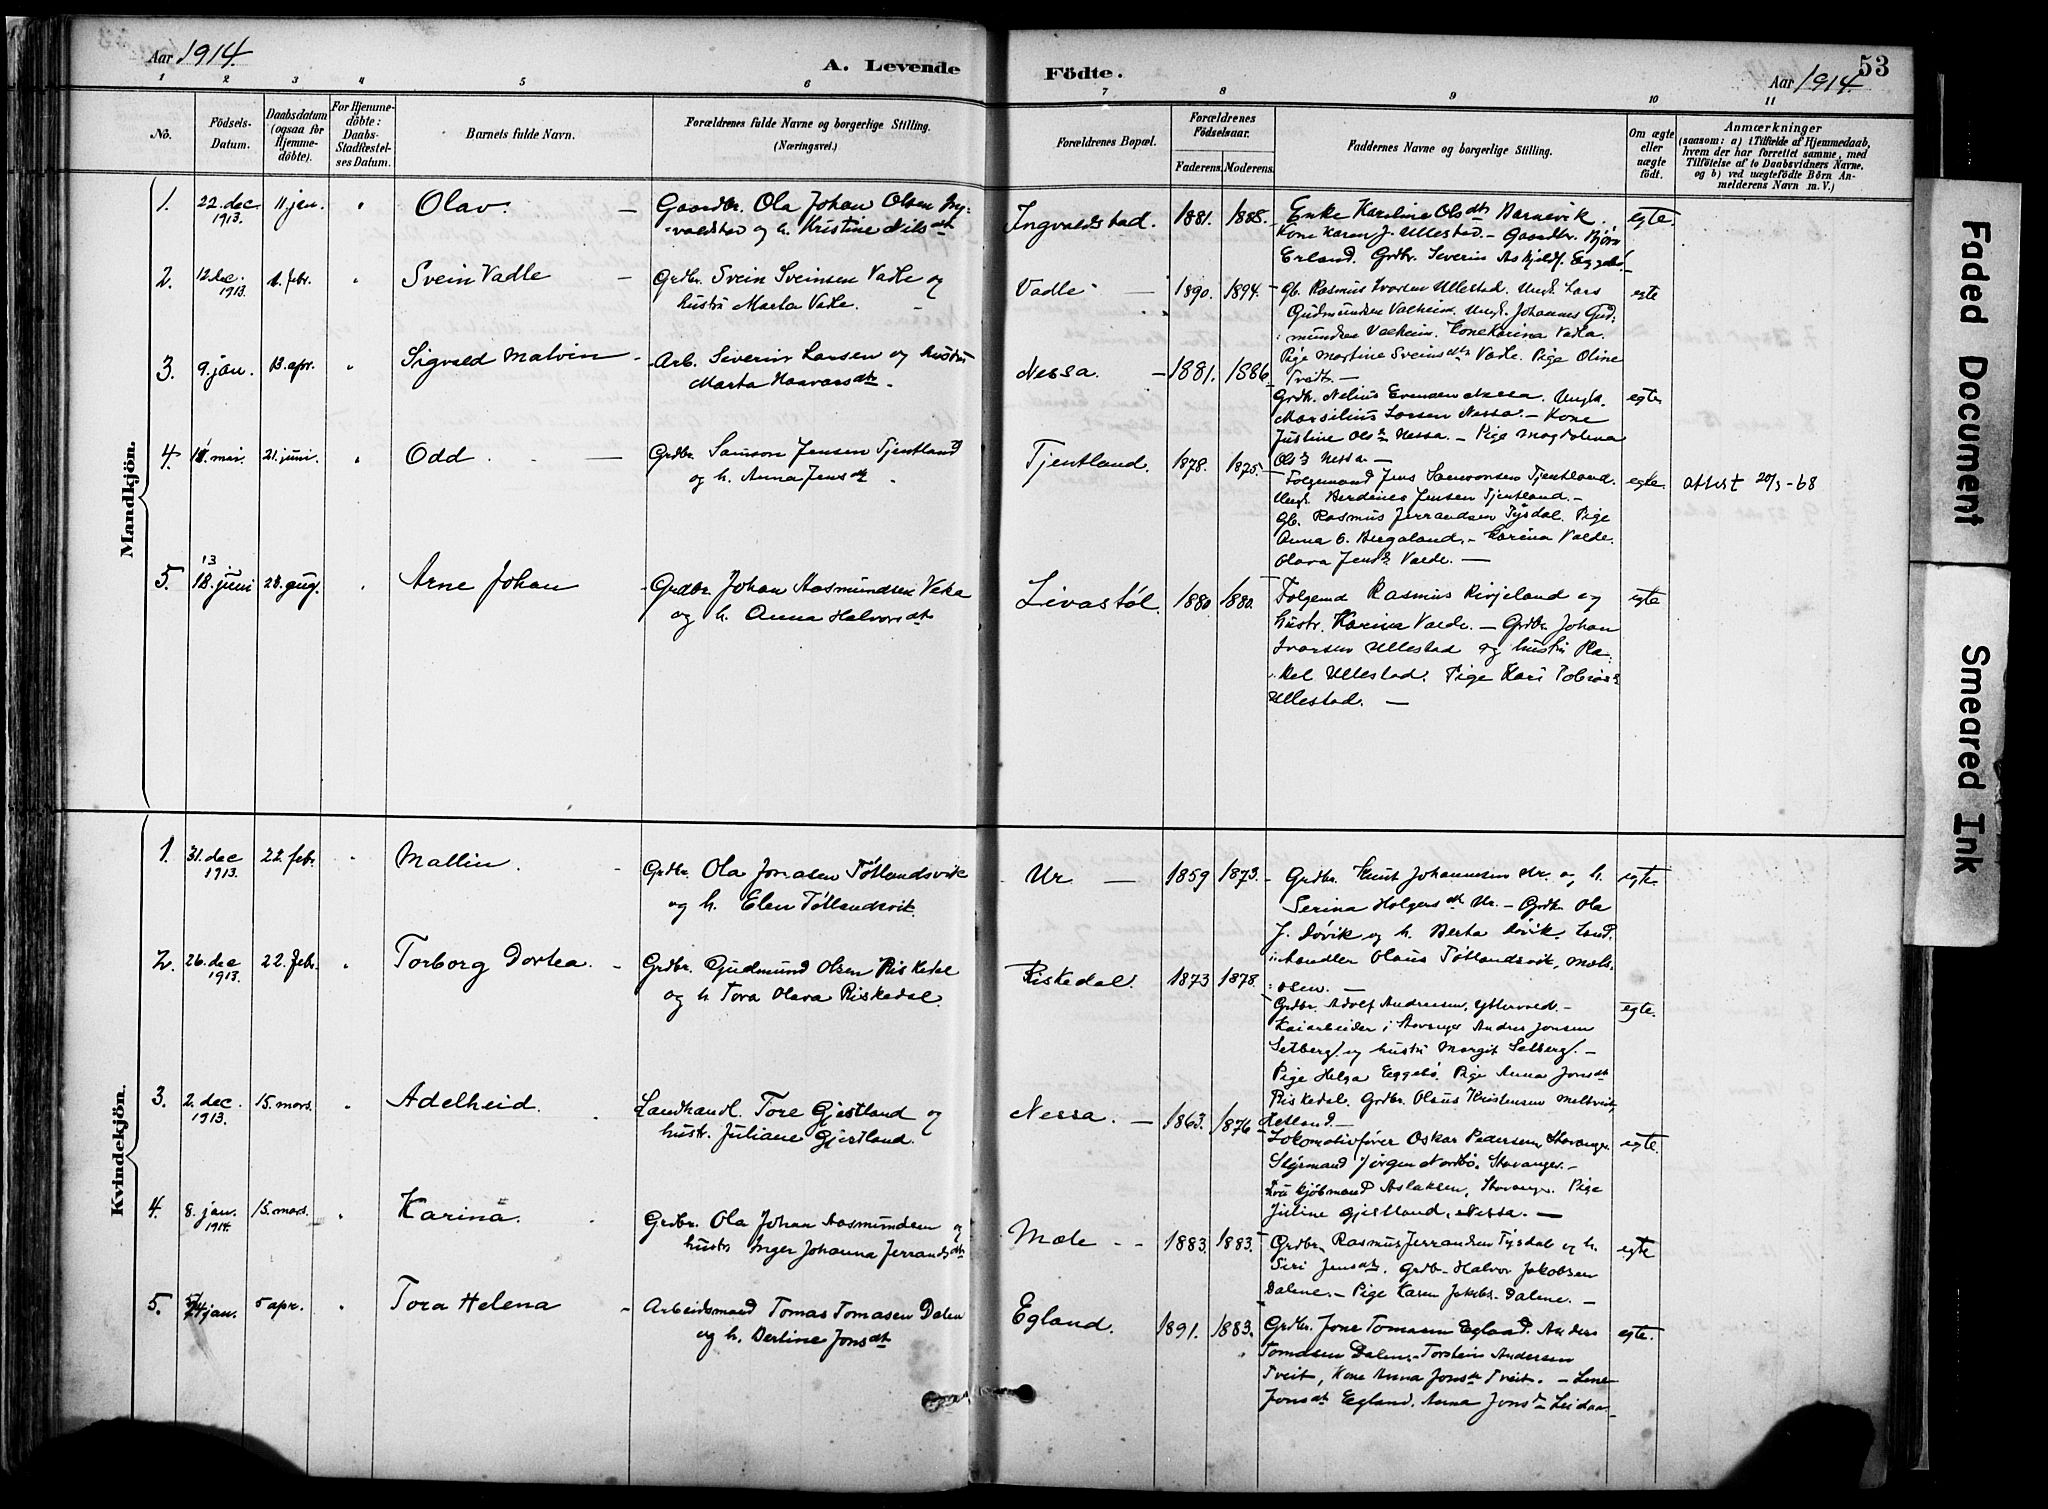 Aar 1914.
A. Levende Födte.
53
Aar 1914.
1 2 3 4 5 6 7 8 9 10 11
No.
Födsels-Datum.
Daabsdatum (ogsaa for Hjemmedöbte).
For Hjemmedöbte: Daabs-Stadfæstelses Datum.
Barnets fulde Navn.
Forældrenes fulde Navne og borgerlige Stilling. (Næringsvei.)
Forældrenes Bopæl.
Forældrenes Födselsaar.
Faderens. Moderens.
Faddernes Navne og borgerlige Stilling.
Om ægte eller uægte födt.
Anmærkninger
(saasom: a) i Tilfælde af Hjemmedaab, hvem der har forrettet samme, med Tilföielse af to Daabsvidners Navne. og b) ved uægtefödte Börn Anmelderens Navn m. V.)
Mandkjön.
1. 22. dec. 1913. 11 jan. " Olav. —
Gaardbr. Ola Johan Olsen Ing-
valdstad og h. Kristine Nilsdt
Ingvaldstad. 1881. 1885.
Enke Karoline Olsdt Barnevik.
Kone Karen J. Ullestad. — Gaardbr. Bjørn
Erland. Grdbr. Severin Askjeldf. Eggebø.
egte.
2. 12 dec. 1913. 1. febr. " Svein Vadle —
Grdbr. Svein Sveinsen Vadle og
hustru Marta Vadle.
Vadle — 1890. 1894.
Gb. Rasmus Ivarsen Ullestad. Ungk. Lars
Gudmundsen Valheim. Ungk. Johannes Gud-
mundsen Valheim. Kone Karina Vadla.
Pige Martine Sveinsdt Vadle. Pige Oline
Tveit. —
egte
3. 9. jan. 13. apr. " Sigvald Malvin —
Arb. Severin Larsen og hustru
Marta Haavarsdt.
Nessa. — 1881. 1886.
Grdbr. Nelius Evensen Nessa. Ungk.
Marsilius Larsen Nessa. — Kone
Justine Olsdt Nessa. — Pige Magdalena
Olsdt Nessa. —
egte
4. 11. mai. 21. juni. " Odd —
Grdbr. Samson Jensen Tjentland
og h. Anna Jensdt.
Tjentland. 1878. 1875.
Folgemand Jens Samsonsen Tjentland.
Ungk. Berdines Jensen Tjentland. —
Gb. Rasmus Jerrandsen Tysdal. Pige
Anna O. Bergaland. — Karina Valde.
Olava Jensdt Valde. —
egte. attest 20/3-68
5. 13 juni 23. aug. " Arne Johan
Grdbr. Johan Aasmundsen Veka
og h. Anna Halvorsdt.
Livastøl. 1880. 1880.
Folgemd Rasmus Rivjeland og
hustr. Karina Valde. — Grdbr. Johan
Ivarsen Ullestad og hustru Ra-
kel Ullestad. Pige Kari Tobiasdt
Ullestad. —
egte
Kvindekjön.
1. 31. dec 1913. 22. febr. " Mallin. —
Grdbr. Ola Jonasen Tøtlandsvik
og h. Elen Tøtlandsvik.
Ur — 1859 1873.
Grdbr. Knut Johannesen Ur. og h.
Serina Holgersdt Ur. — Grdbr. Ola
J. Døvik og h. Berta Døvik. Land-
handler Olaus Tøtlandsvik, Mals-
osen. —
egte
2. 26. dec 1913. 22. febr. " Torborg Dortea. —
Grdbr. Gudmund Olsen Riskedal
og h. Tora Olava Riskedal.
Riskedal. 1873 1878.
Grdbr. Adolf Andreasen, —
Kaiarbeider i Stavanger Andres Jonsen
Selberg. og hustru Margit Selberg. —
Pige Helga Eggebø. Pige Anna Jonsdt
Riskedal. Grdbr. Olaus Kristensen
Hetland. —
egte.
3. 2. dec. 1913. 15. mars. " Adelheid. .
Landhandl. Tore Gjestland og
hustr. Juliane Gjestland.
Nessa. — 1863. 1876
Lokomotivfører Oskar Pedersen, Stavanger
Styrmand Jørgen Nordbø. Stavanger. —
Fru kjøbmand Aslaksen, Stavanger. Pige
Juline Gjestland, Nessa. —
egte.
4. 8. jan. 1914. 15. mars. " Karina. .
Grdbr. Ola Johan Aasmundsen og
hustr Inger Johanna Jerrandsdt
Mæle — 1883. 1883.
Grdbr. Rasmus Jerrandsen Tysdal og h.
Siri Jensdt. Grdb. Halvor Jakobsen
Dalene. — Pige Karen Jakobs. Dalene. —
egte
5. 24 jan. 5 apr. " Tora Helena —
Arbeidsmand Tomas Tomasen Dalen
og h. Bertine Jonsdt
Egland. 1891. 1883.
Grdbr. Jone Tomasen Egland. Anders
Tomasen Dalen, — Torstein Andersen
Tveit, Kone Anna Jonsdt Tveit. — Lene
Jonsdt Egland. Anna Jonsdt
egte.
Faded Document
Smeared Ink